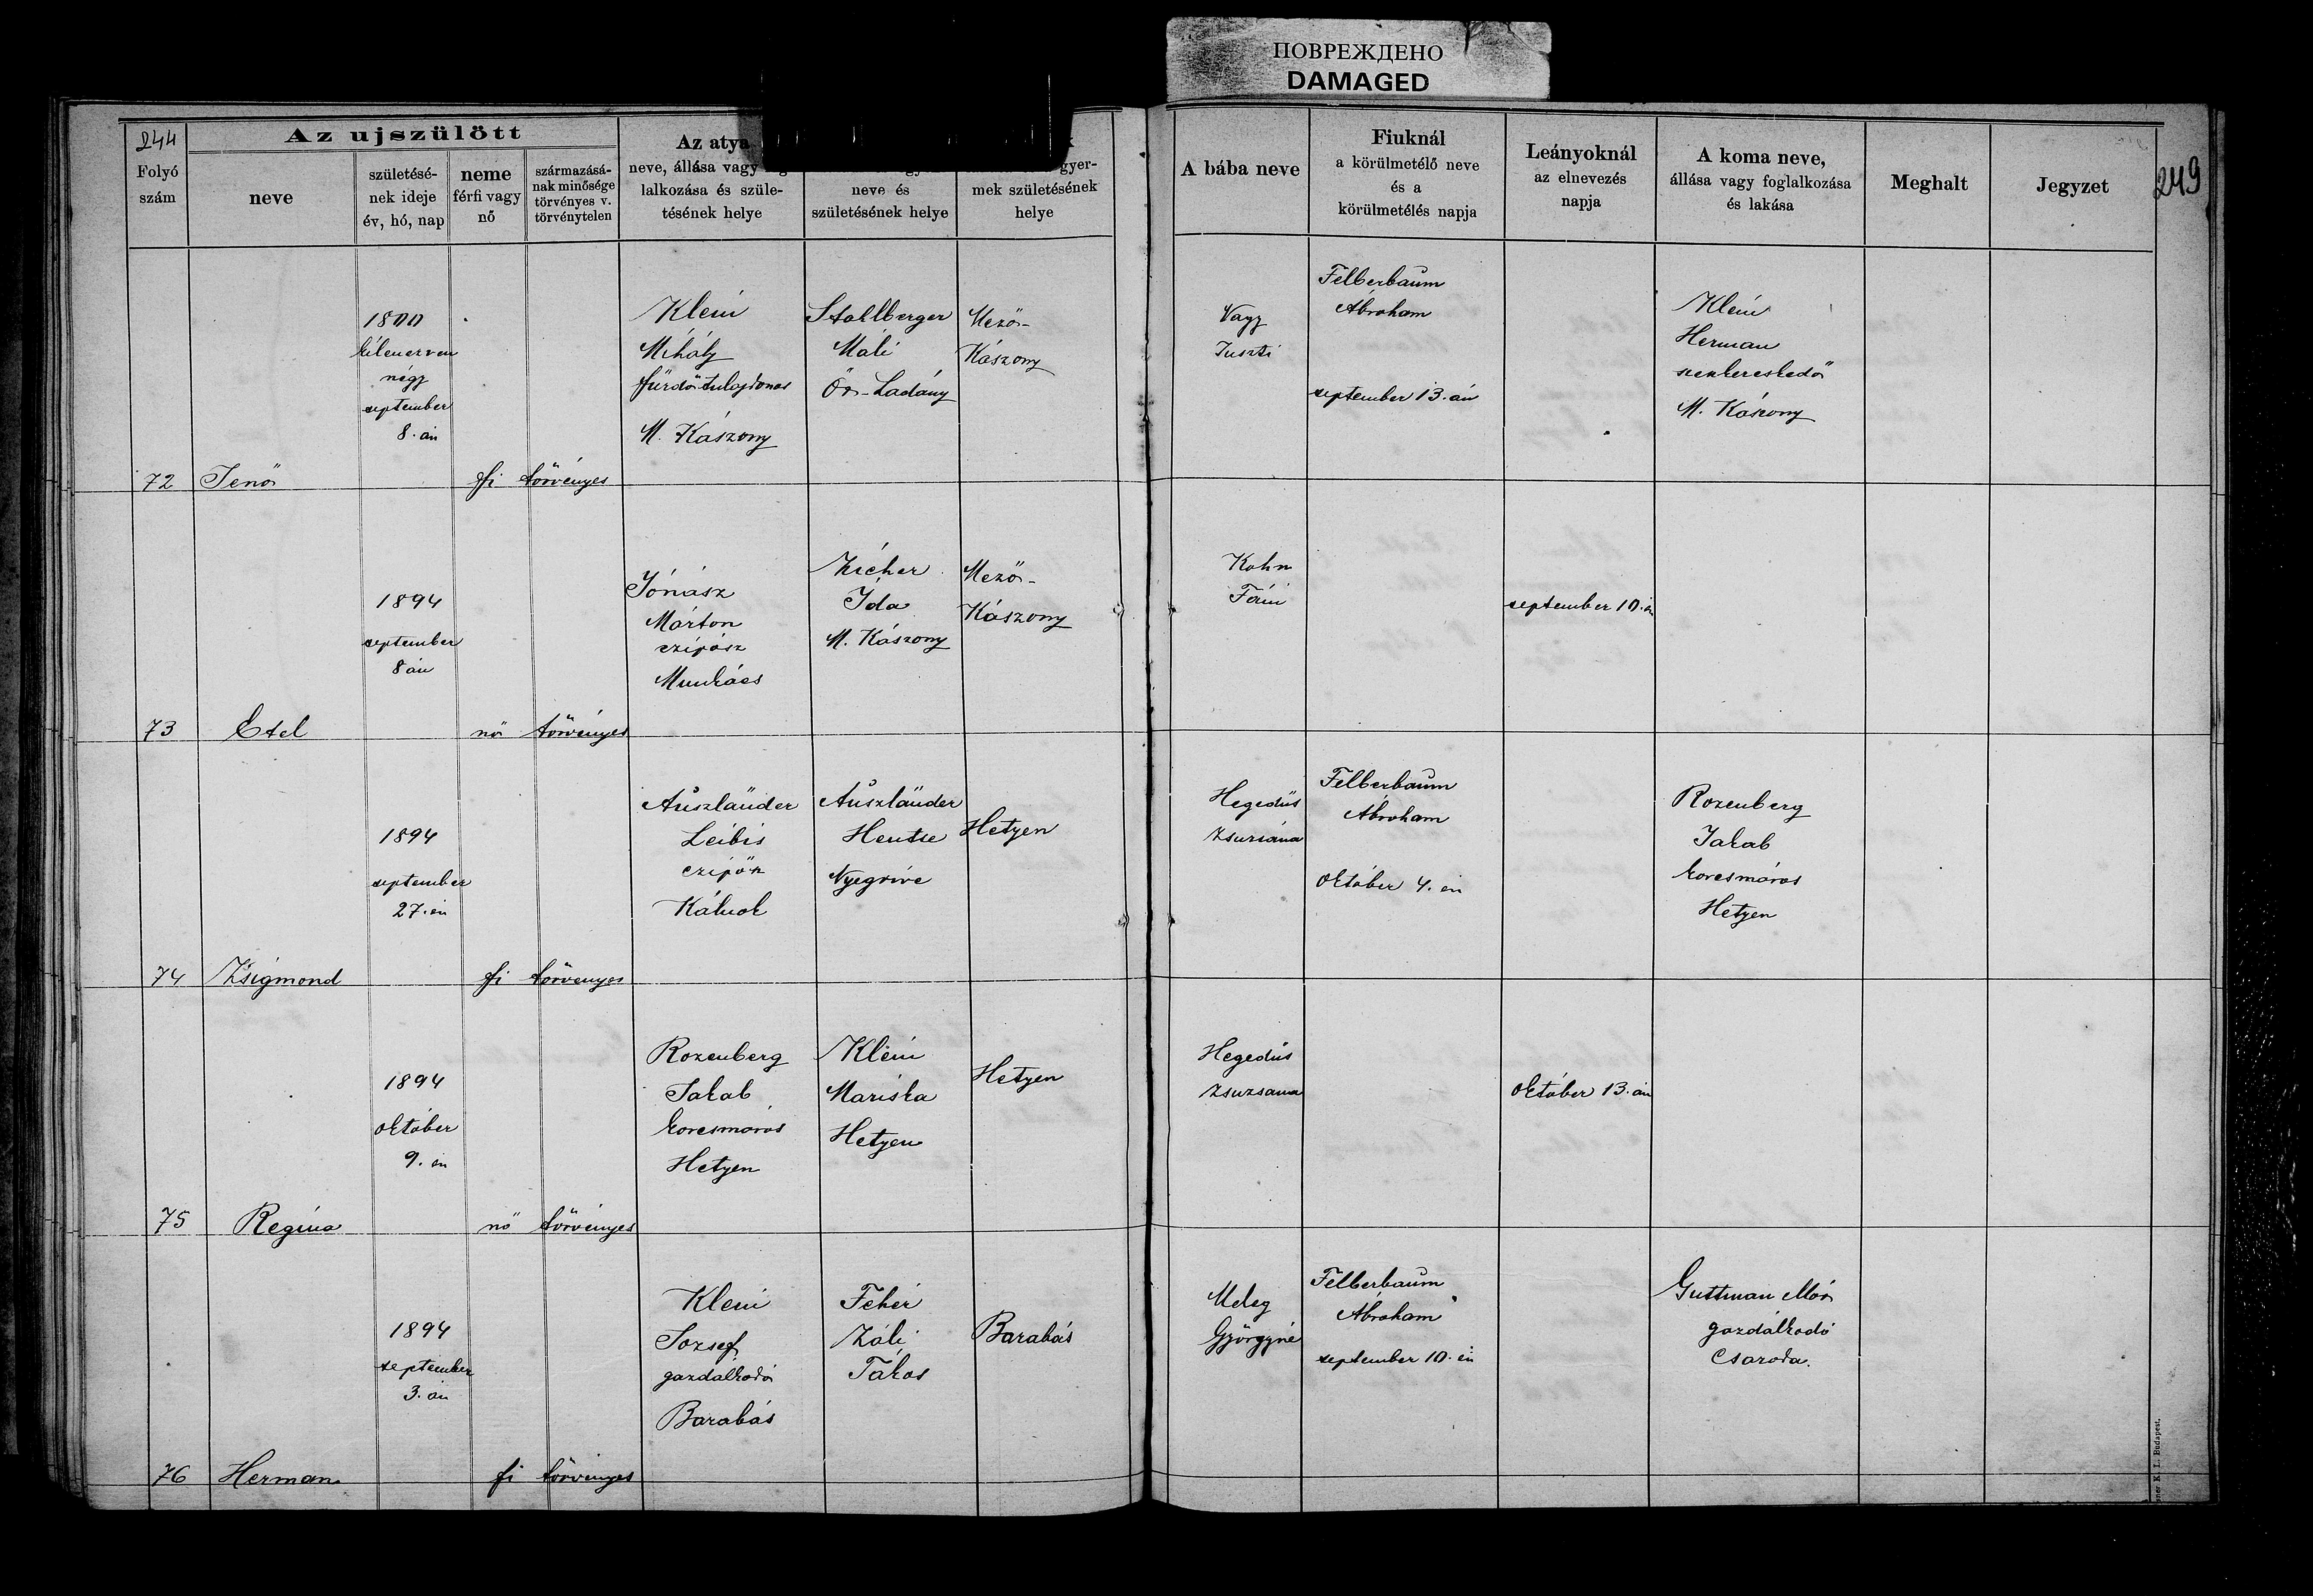 ПОВРЕЖДЕНО
DAMAGED
244
Folyó
szám
Az ujszülött
neve
születésé-
nek ideje
év, hó, nap
neme
férfi vagy
nő
származásá-
nak minősége
törvényes v.
törvénytelen
Az atya
neve, állása vagy
lalkozása és szüle-
tésének helye
neve és
születésének helye
gyer-
mek születésének
helye
A bába neve
Fiuknál
a körülmetélő neve
és a
körülmetélés napja
Leányoknál
az elnevezés
napja
A koma neve,
állása vagy foglalkozása
és lakása
Meghalt
Jegyzet
249
72
Jenő
1800
kilenczven
négy
september
8. án
fi
törvényes
Klein
Mihály
fürdőtulajdonos
M. Kászony
Stahlberger
Máli
Ör-Ladány
Mező-
Kászony
Nagy
Juszti
Felberbaum
Ábraham
september 13. án
Klein
Herman
M. Kászony
73
Etel
1894
september
8 án
nő
törvényes
Jónász
Márton
czipész
Munkács
Zicher
Ida
M. Kászony
Mező-
Kászony
Kohn
Fáni
september 10. én
74
Zsigmond
1894
september
27. én
fi
törvényes
Auszländer
Leibis
czipész
Auszländer
Hentse
Hetyen
Hegedüs
Zsuzsána
Felberbaum
Ábraham
október 4. én
Rozenberg
Jakab
korcsmáros
Hetyen
75
Regina
1894
október
9. én
nő
törvényes
Rozenberg
Jakab
korcsmáros
Hetyen
Klein
Mariska
Hetyen
Hetyen
Hegedüs
Zsuzsana
október 13. án
76
Herman
1894
september
3. án
fi
törvényes
Klein
József
gazdálkodó
Barabás
Fehér
Záli
Tákos
Barabás
Meleg
Györgyné
Felberbaum
Ábraham
september 10. én
Guttman Mór
gazdálkodó
Csaroda.
K. L. Budapest.